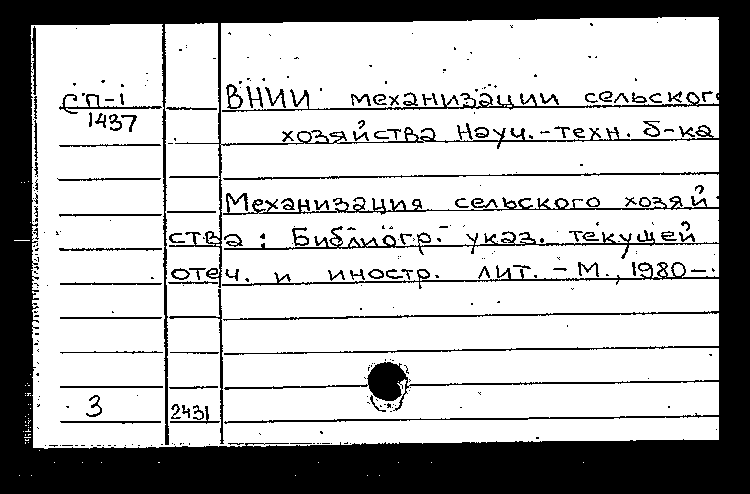 СП-1 ВНИИ механизации сельского
1437 хозяйства Науч.-техн. б-ка
Механизация сельского хозяй-
ства: Библиогр. указ. текущей
отеч. и иностр. лит. - М., 1980-.
3 2431